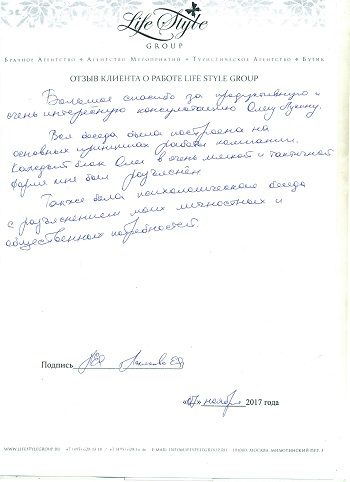 Life Style
GROUP
Брачное Агентство ♦ Агентство Мероприятий ♦ Туристическое Агентство ♦ Бутик
ОТЗЫВ КЛИЕНТА О РАБОТЕ LIFE STYLE GROUP
Большое спасибо за продуктивную и
очень интересную консультацию Олегу
Вся беседа была построена на
основных принципах работы компании.
Каждый блок Олег в очень мягкой и тактичной
форме мне был разъяснён.
Также была психологическая беседа
с разъяснением моих личностных и
общественных потребностей.
Подпись
«07» ноября 2017 года
WWW.LIFESTYLEGROUP.RU